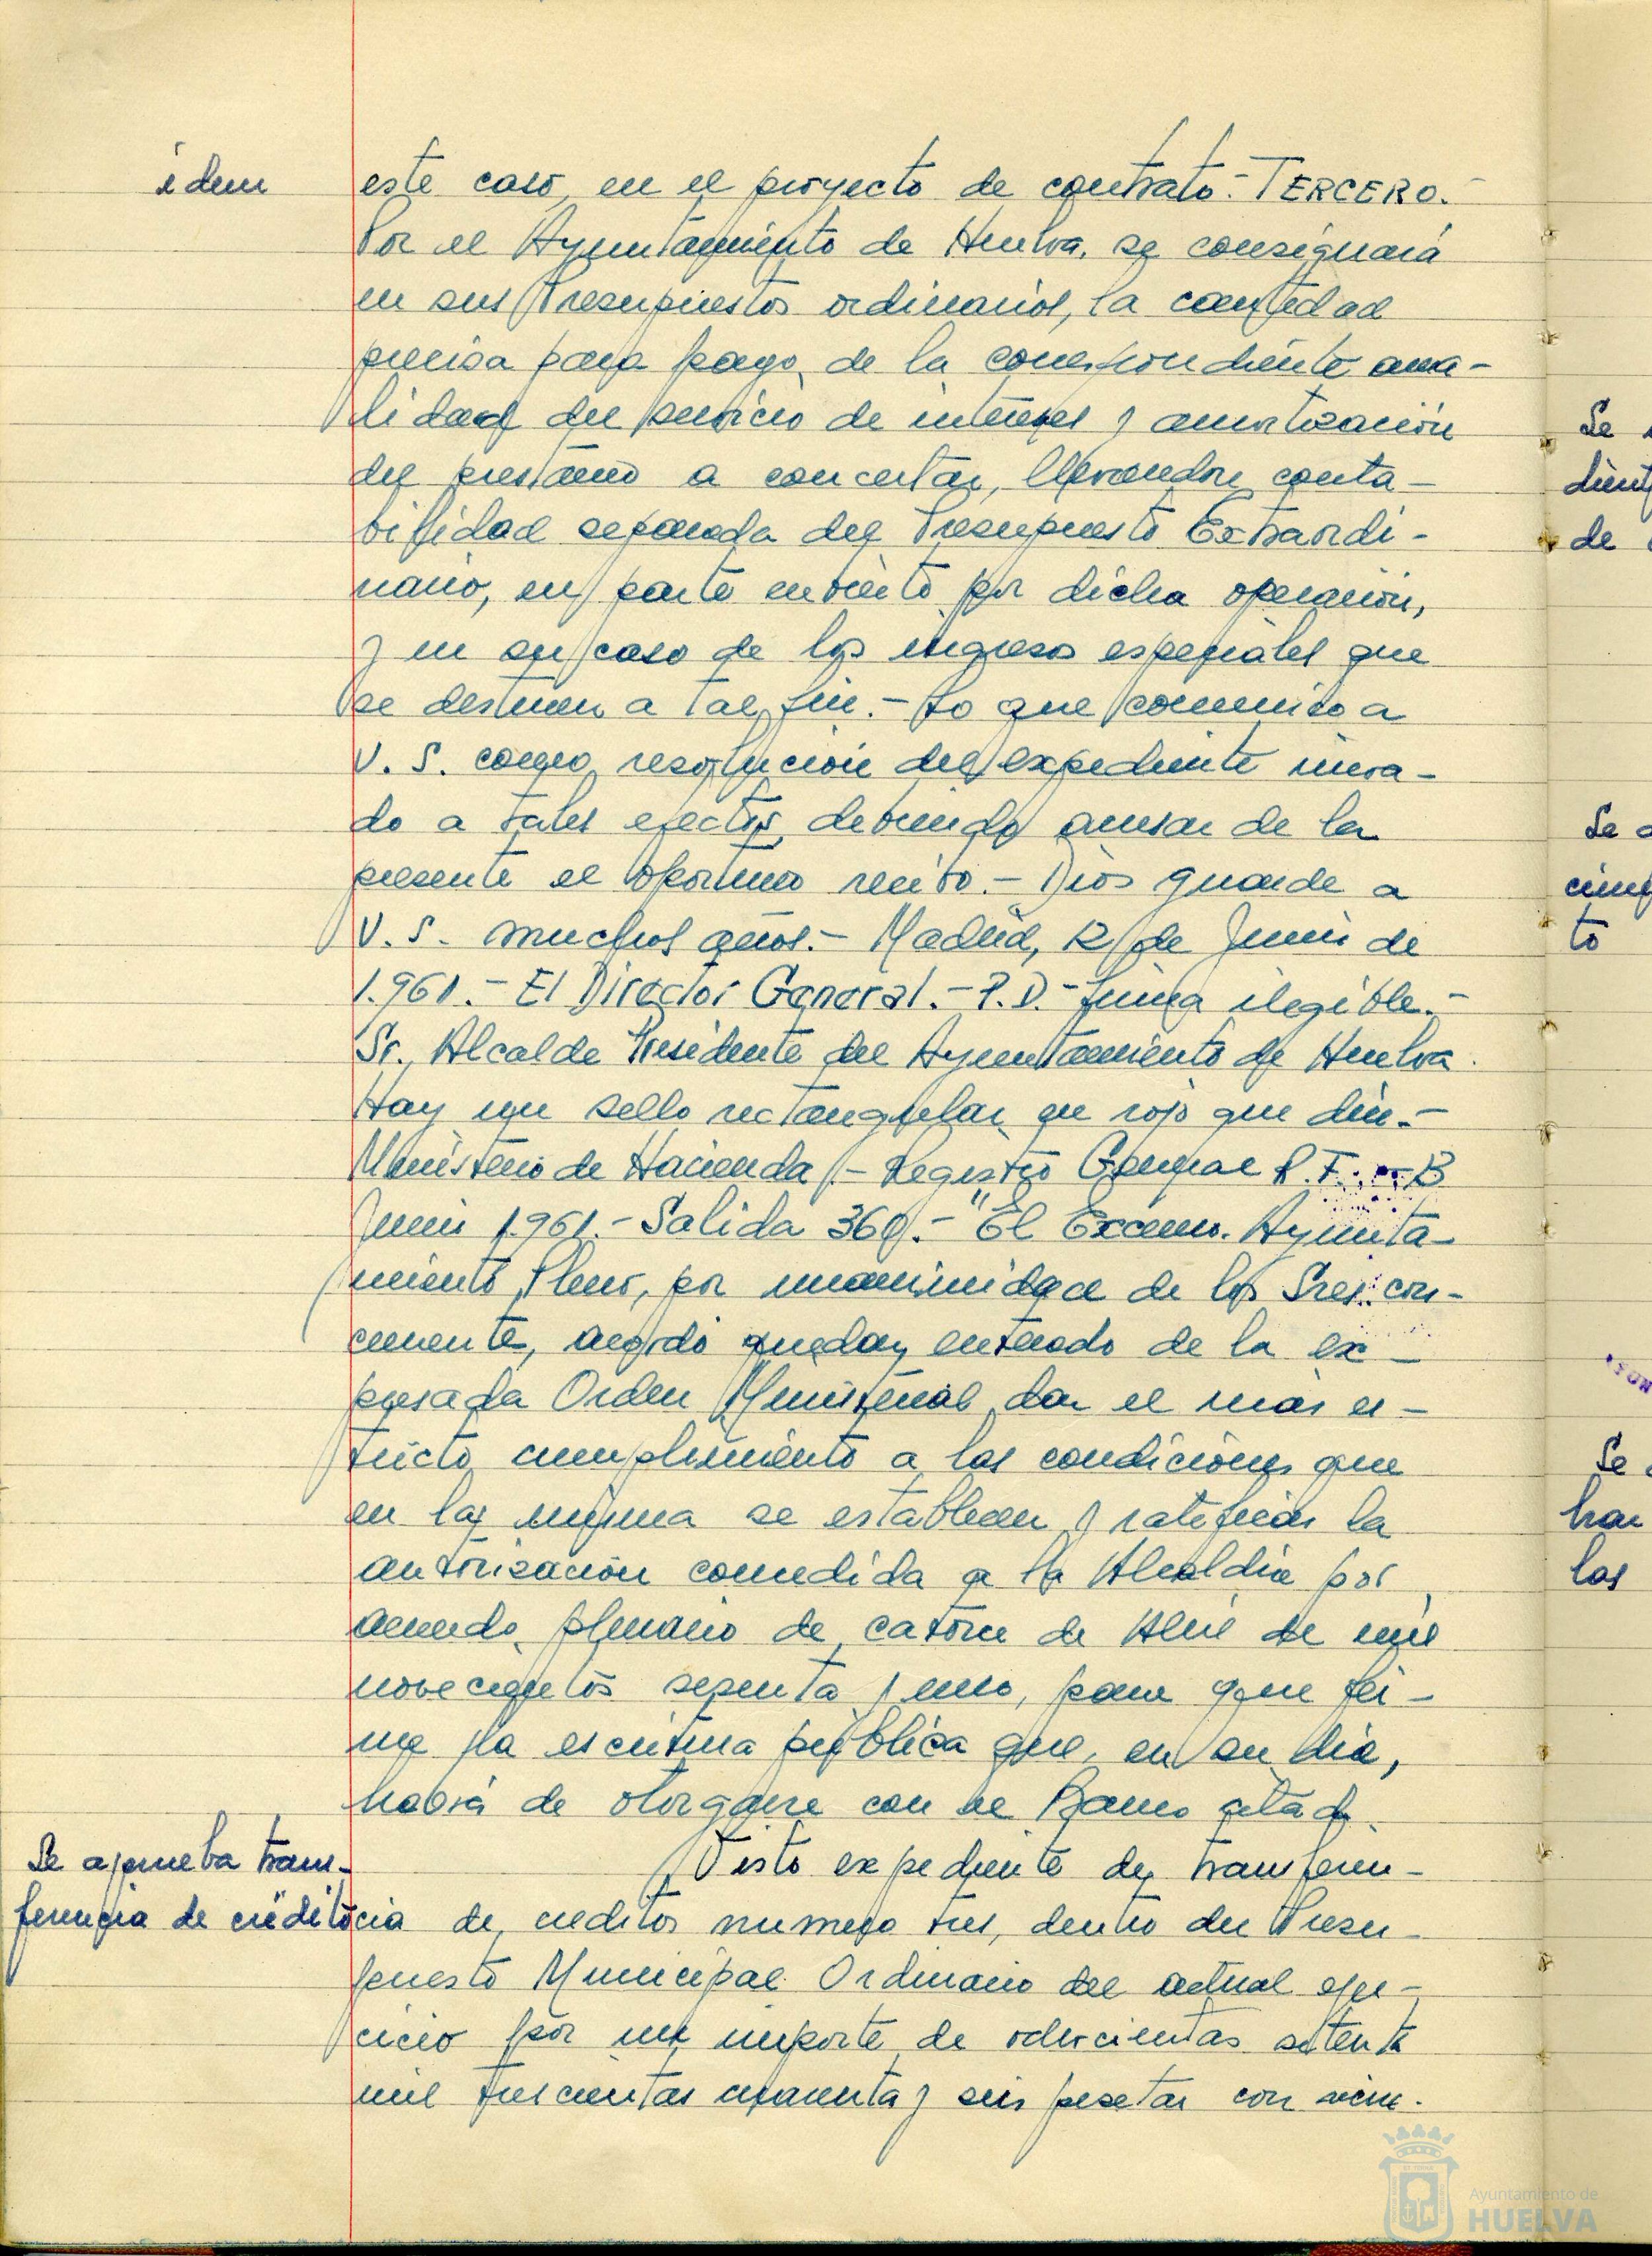 idem
este caso, en el proyecto de contrato.- TERCERO.-
Por el Ayuntamiento de Huelva, se consignará
en sus Presupuestos ordinarios, la cantidad
precisa para pago de la correspondiente anua-
lidad del servicio de intereses y amortización
del préstamo a concertar, llevándose conta-
bilidad separada del Presupuesto Extraordi-
nario, en parte cubierto por dicha operación,
y en su caso de los ingresos especiales que
se destinen a tal fin.- Lo que comunico a
V. S. como resolución del expediente incoa-
do a tales efectos, debiendo acusar de la
presente el oportuno recibo.- Dios guarde a
V. S. muchos años.- Madrid, 12 de Junio de
1.961.- El Director General.- P.D.- firma ilegible.-
Sr. Alcalde Presidente del Ayuntamiento de Huelva.
Hay un sello rectangular en rojo que dice.-
Ministerio de Hacienda.- Registro General R.F.
Junio 1.961.- Salida 360.- "El Excmo. Ayunta-
miento Pleno, por unanimidad de los Sres. con-
currente, acordó quedar enterado de la ex-
presada Orden Ministerial, dar el más es-
tricto cumplimiento a las condiciones que
en la misma se establecen y ratificar la
autorización concedida a la Alcaldía por
acuerdo plenario de catorce de Abril de mil
novecientos sesenta y uno, para que fir-
me la escritura pública que, en su día,
habrá de otorgarse con el Banco citado.
Se aprueba trans-
ferencia de créditos
Visto expediente de transferen-
cia de créditos número tres, dentro del Presu-
puesto Municipal Ordinario del actual ejer-
cicio por un importe de ochocientas setenta
mil trescientas cuarenta y seis pesetas con
Se
de
Se
to
Se
las
Ayuntamiento de
HUELVA